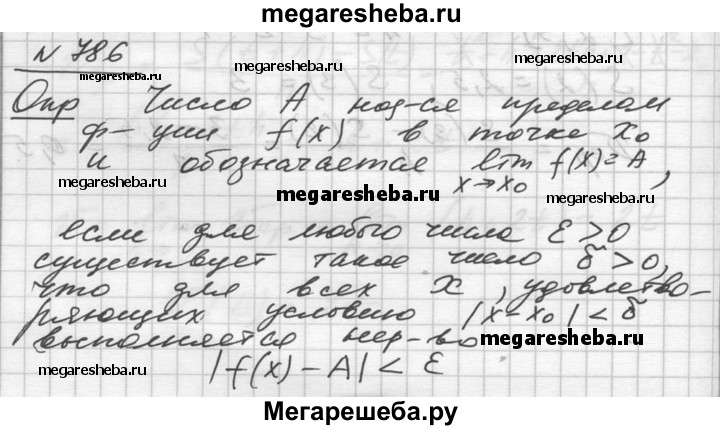 megaresheba.ru
N 786
megaresheba.ru
megaresheba.ru
megaresheba.ru
Опр Число A наз-ся пределом
ф-ции f(x) в точке x₀
и обозначается lim f(x)=A,
x→x₀
megaresheba.ru
megaresheba.ru
если для любого числа ε>0
существует такое число δ>0,
что для всех x, удовлетво-
ряющих условию |x-x₀|<δ
выполняется нер-во
megaresheba.ru
|f(x)-A|<ε
megaresheba.ru
Мегарешеба.ру